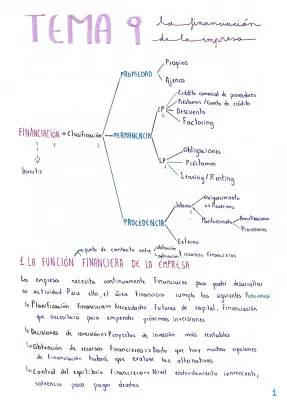 TEMA 9 la financiación
de la empresa
PROPIEDAD
Propios
Ajenos
FINANCIACIÓN → Clasificación
Investir
PERMANENCIA
CP
Crédito comercial de proveedores
Préstamos / Cuenta de crédito
Descuento
Factoring
LP
Obligaciones
Préstamos
Leasing / Renting
PROCEDENCIA
Interna
Enriquecimiento
Mantenimiento
Amortizaciones
Provisiones
Externa
punto de contacto entre obtención aplicación recursos financieros
1. LA FUNCIÓN FINANCIERA DE LA EMPRESA
La empresa necesita continuamente financiarse para poder desarrollar
su actividad. Para ello, el área financiera cumple las siguientes funciones:
Planificación financiera => Necesidades futuras de capital, financiación
que necesitará para emprender próximas inversiones
Decisiones de inversión => Proyectos de inversión más rentables
Obtención de recursos financieros => Dado que hay muchas opciones
de financiación habrá que evaluar las alternativas
Control del equilibrio financiero => Nivel endeudamiento conveniente,
solvencia para pagar deudas
1